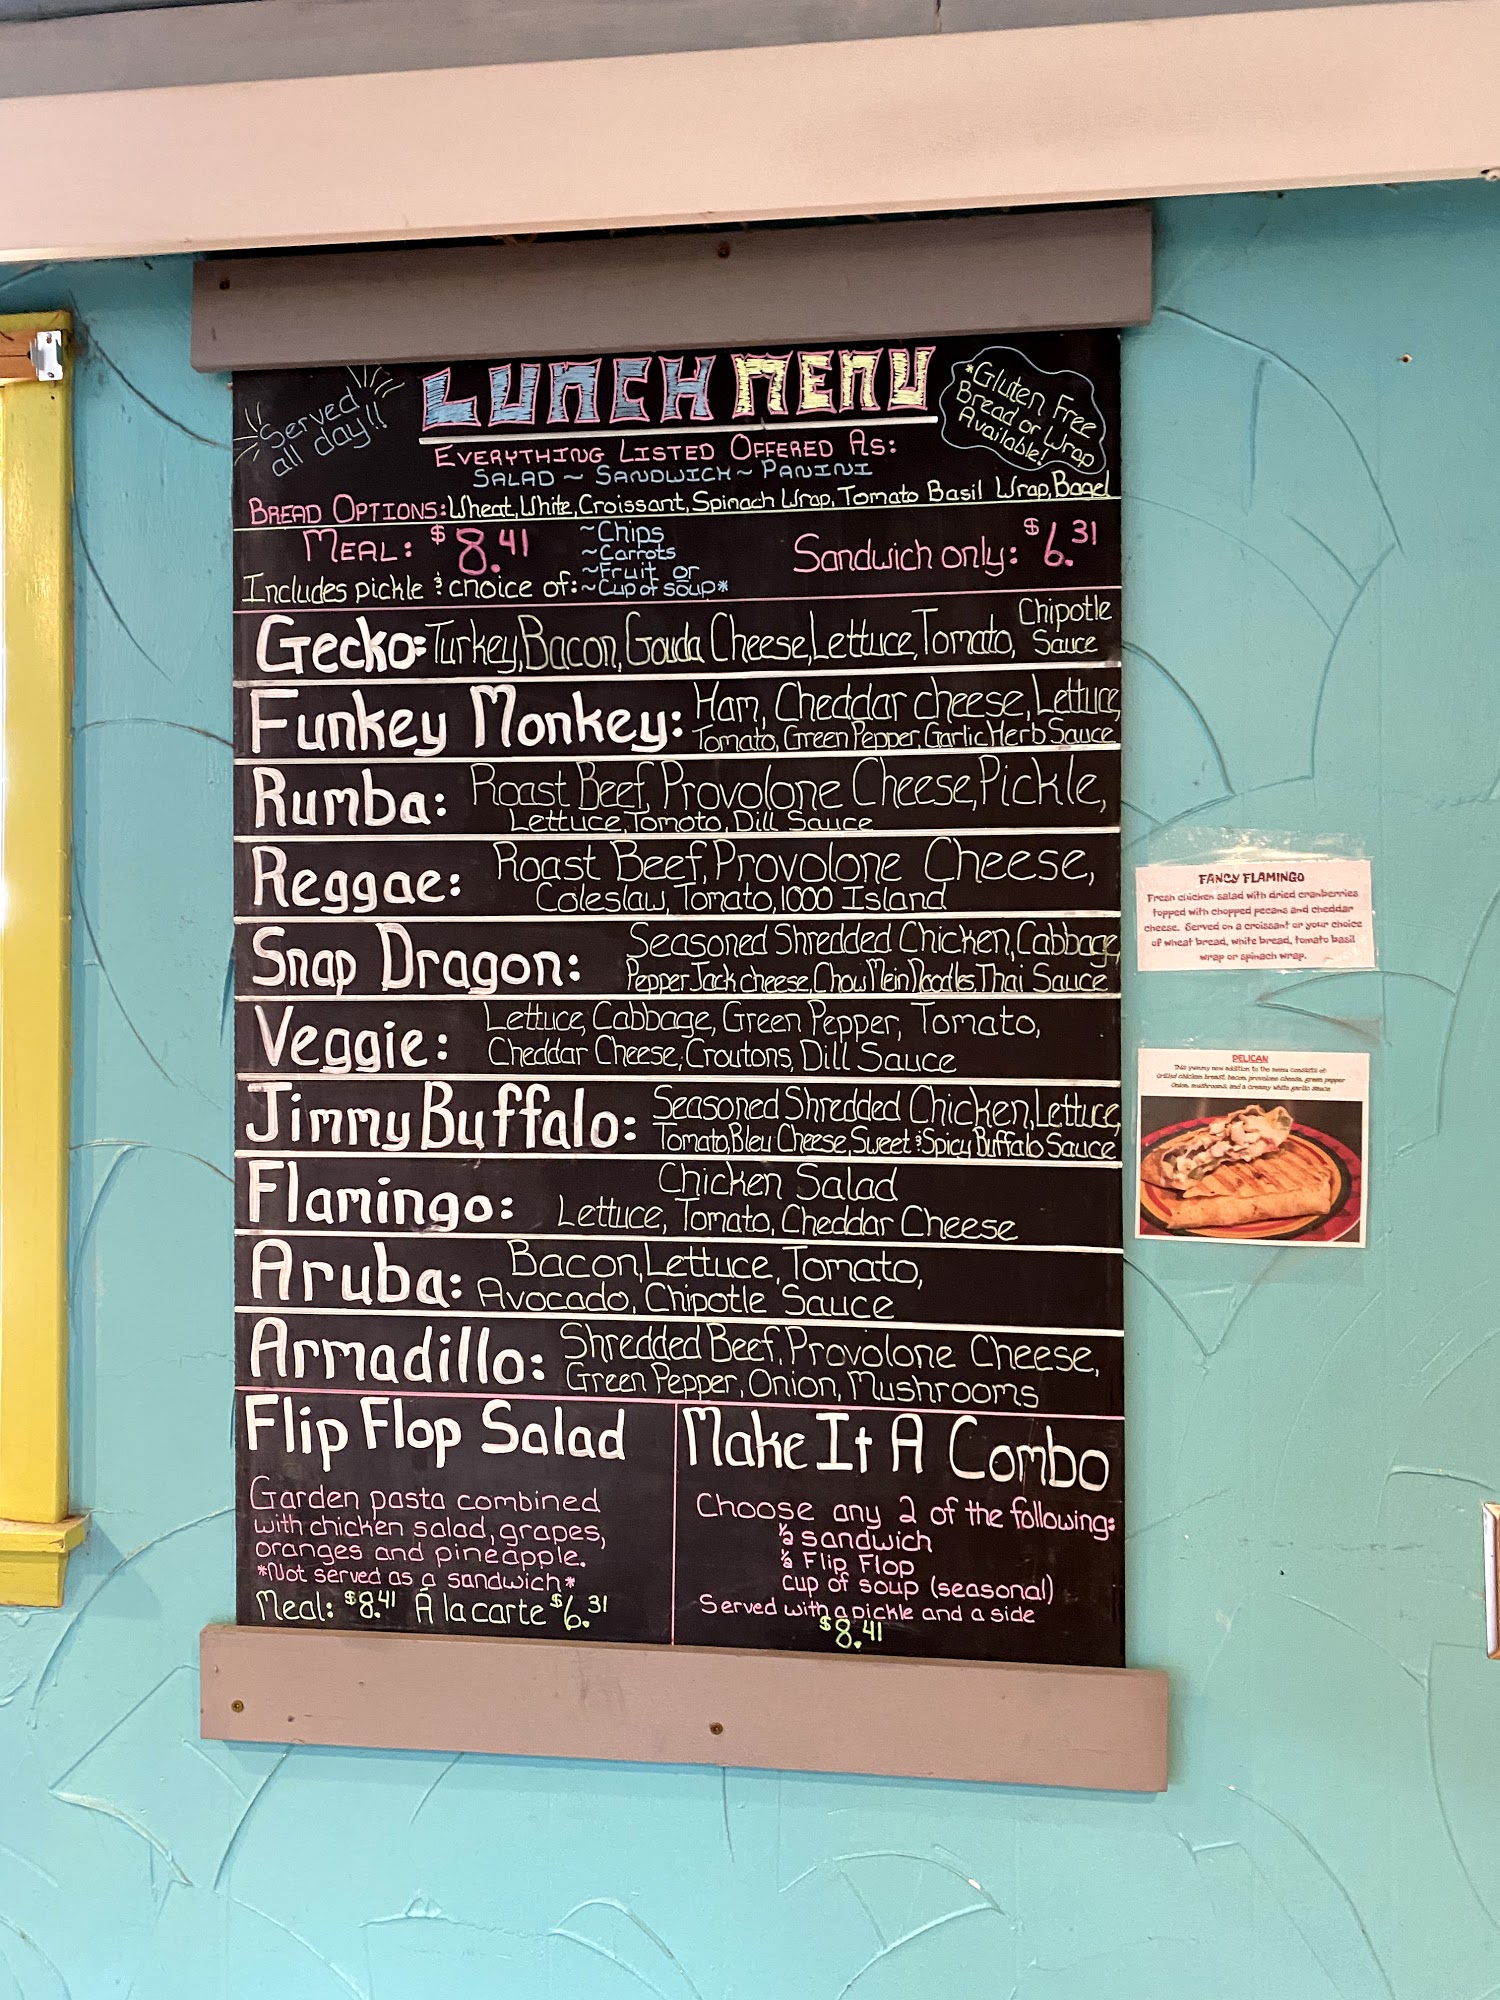 Served
all day!!
LUNCH MENU
*Gluten Free
Bread or Wrap
Available!
EVERYTHING LISTED OFFERED AS:
SALAD ~ SANDWICH ~ PANINI
BREAD OPTIONS: Wheat, White, Croissant, Spinach Wrap, Tomato Basil Wrap, Bagel
MEAL: $8.41
Includes pickle & choice of:
~Chips
~Carrots
~Fruit or
~Cup of soup*
Sandwich only: $6.31
Gecko: Turkey, Bacon, Gouda Cheese, Lettuce, Tomato, Chipotle
Sauce
Funkey Monkey: Ham, Cheddar cheese, Lettuce,
Tomato, Green Pepper, Garlic Herb Sauce
Rumba: Roast Beef, Provolone Cheese, Pickle,
Lettuce, Tomoto, Dill Sauce
Reggae: Roast Beef, Provolone Cheese,
Coleslaw, Tomato, 1000 Island
Snap Dragon: Seasoned Shredded Chicken, Cabbage,
Pepper Jack cheese, Chow Mein Noodles, Thai Sauce
Veggie: Lettuce, Cabbage, Green Pepper, Tomato,
Cheddar Cheese, Croutons, Dill Sauce
Jimmy Buffalo: Seasoned Shredded Chicken, Lettuce,
Tomato, Bleu Cheese, Sweet & Spicy Buffalo Sauce
Flamingo: Chicken Salad
Lettuce, Tomato, Cheddar Cheese
Aruba: Bacon, Lettuce, Tomato,
Avocado, Chipotle Sauce
Armadillo: Shredded Beef, Provolone Cheese,
Green Pepper, Onion, Mushrooms
Flip Flop Salad
Garden pasta combined
with chicken salad, grapes,
oranges and pineapple.
*Not served as a sandwich*
Meal: $8.41 Á la carte $6.31
Make It A Combo
Choose any 2 of the following:
½ sandwich
½ Flip Flop
cup of soup (seasonal)
Served with a pickle and a side
$8.41
FANCY FLAMINGO
Fresh chicken salad with dried cranberries
topped with chopped pecans and cheddar
cheese. Served on a croissant or your choice
of wheat bread, white bread, tomato basil
wrap or spinach wrap.
PELICAN
This yummy new addition to the menu consists of:
Grilled chicken breast, bacon, provolone cheese, green pepper
Onion, mushrooms, and a creamy white garlic sauce